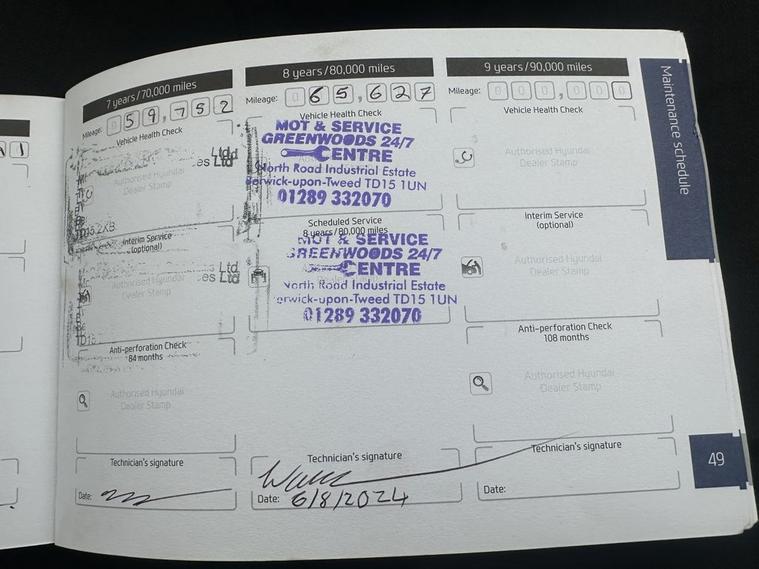 7 years/70,000 miles
Mileage: 0 59,752
Vehicle Health Check
Ltd
es Ltd
Authorised Hyundai
Dealer Stamp
Interim Service
(optional)
Ltd
es Ltd
Authorised Hyundai
Dealer Stamp
TD15
Anti-perforation Check
84 months
Authorised Hyundai
Dealer Stamp
Technician's signature
Date:
8 years/80,000 miles
Mileage: 0 65,627
Vehicle Health Check
MOT & SERVICE
GREENWOODS 24/7
CENTRE
North Road Industrial Estate
erwick-upon-Tweed TD15 1UN
01289 332070
Scheduled Service
8 years/80,000 miles
MOT & SERVICE
GREENWOODS 24/7
CENTRE
North Road Industrial Estate
erwick-upon-Tweed TD15 1UN
01289 332070
Technician's signature
Date: 6/8/2024
9 years/90,000 miles
Mileage: 000,000
Vehicle Health Check
Authorised Hyundai
Dealer Stamp
Interim Service
(optional)
Authorised Hyundai
Dealer Stamp
Anti-perforation Check
108 months
Authorised Hyundai
Dealer Stamp
Technician's signature
Date:
Maintenance schedule
49